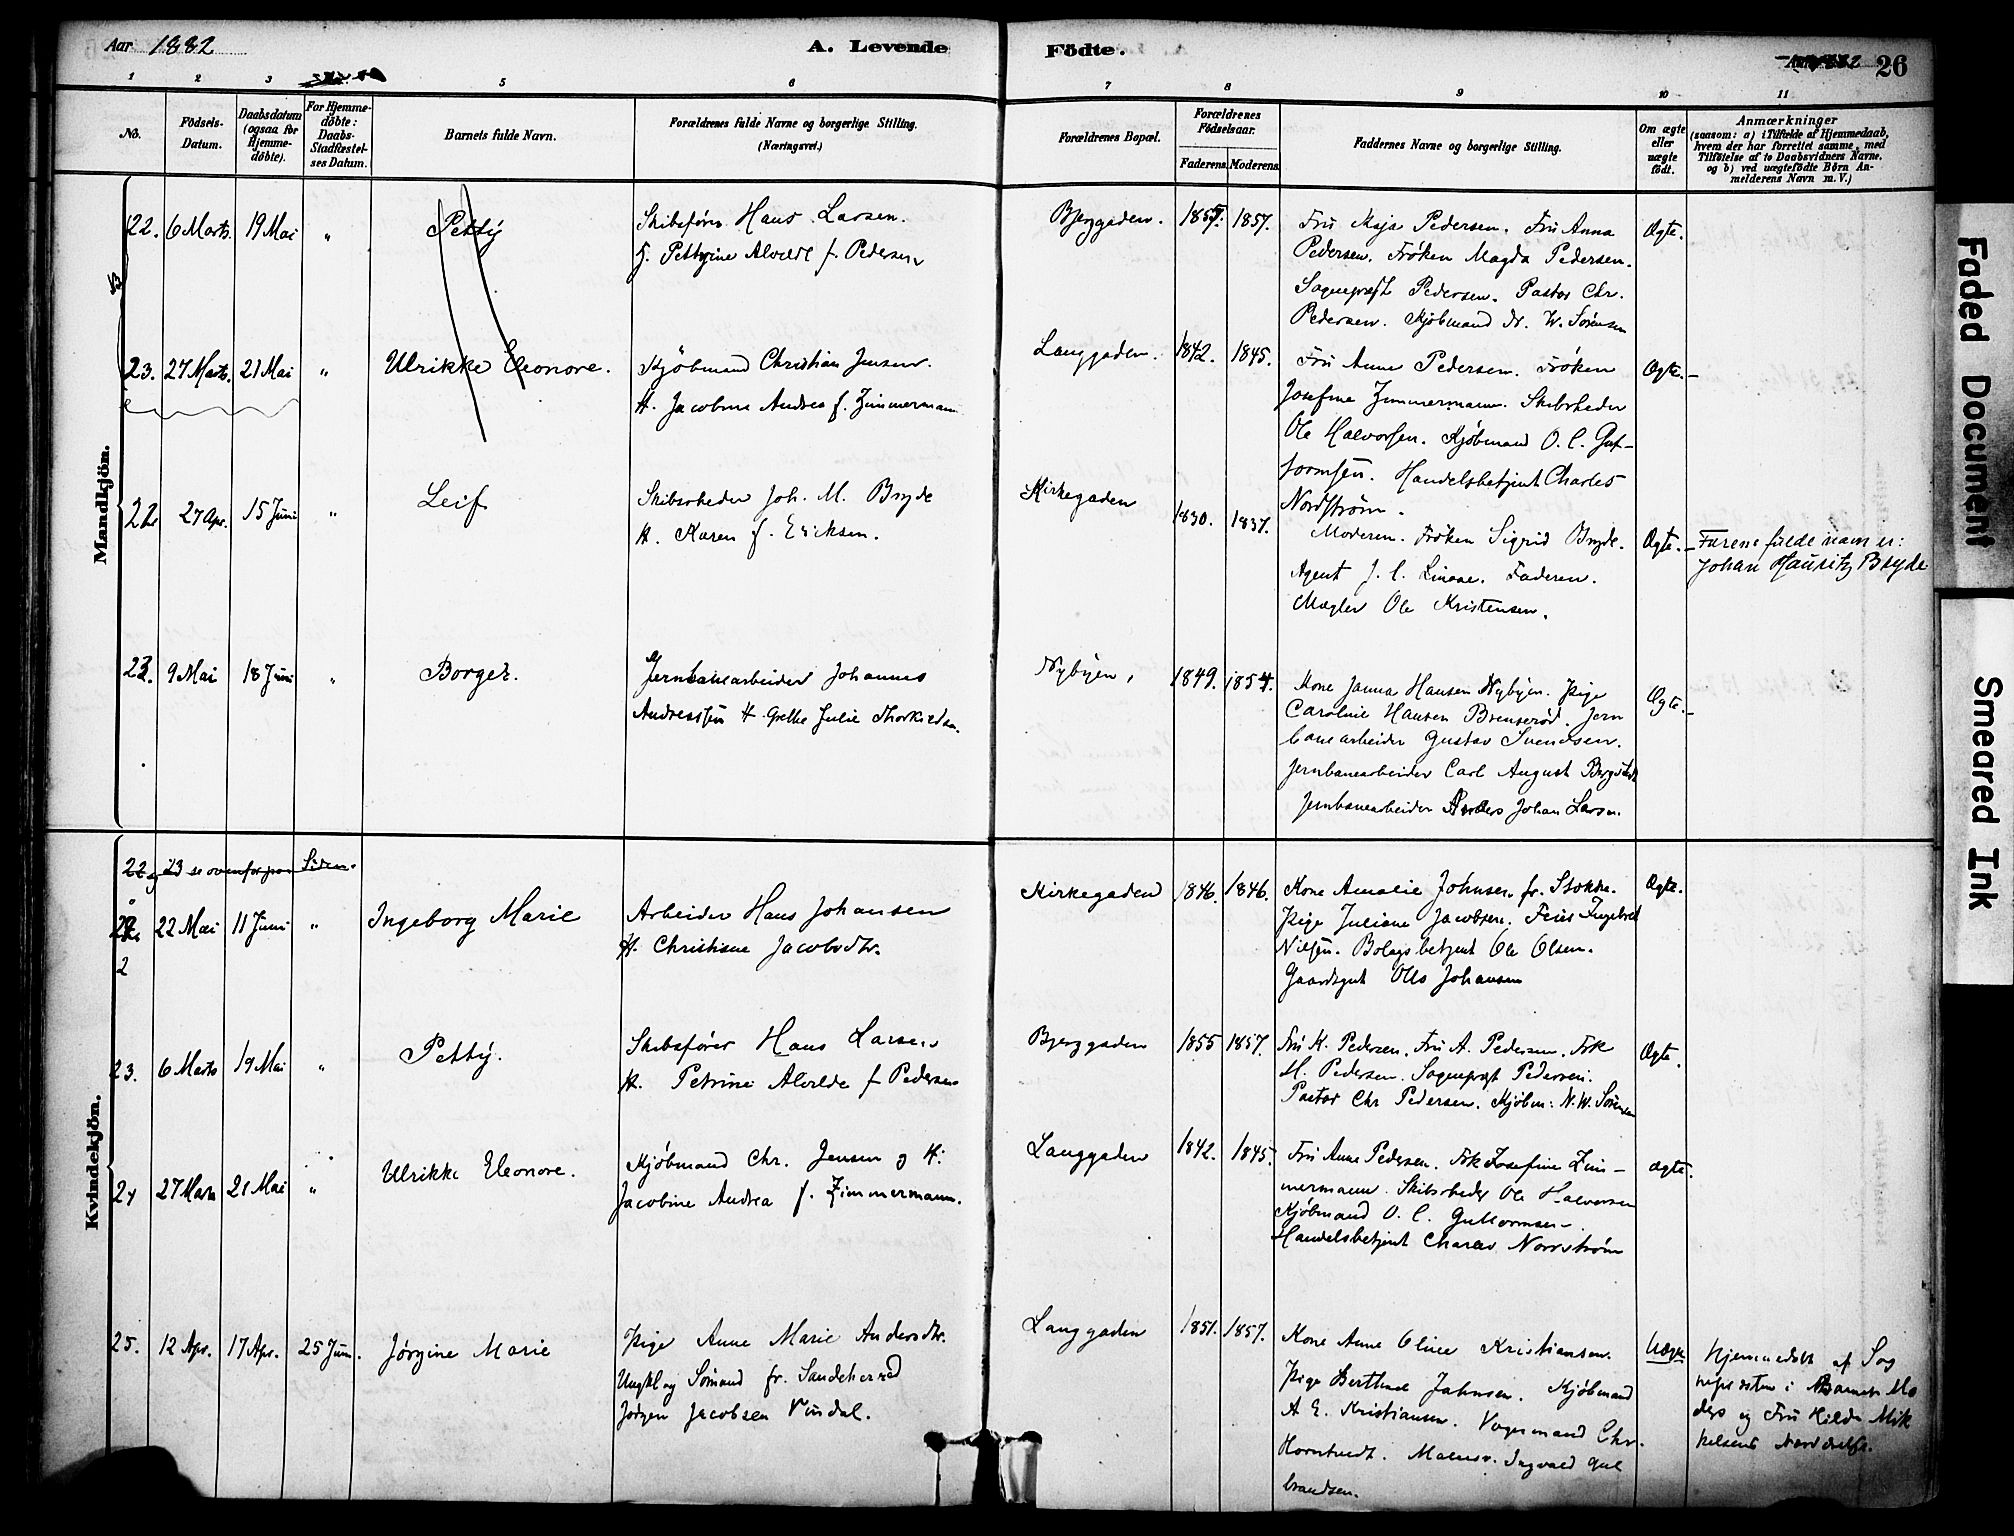 Aar 1882
A. Levende
Födte.
26
1 2 3 5 6 7 8 9 10 11
No.
Födsels-
Datum.
Daabsdatum
(ogsaa for
Hjemme-
döbte).
For Hjemme-
döbte:
Daabs-
Stadfæstel-
ses Datum.
Barnets fulde Navn.
Forældrenes fulde Navne og borgerlige Stilling.
(Næringsvei.)
Forældrenes Bopæl.
Forældrenes
Födselsaar.
Faderens. Moderens.
Faddernes Navne og borgerlige Stilling.
Om ægte
eller
uægte
födt.
Anmærkninger
(saasom: a) i Tilfælde af Hjemmedaab,
hvem der har forrettet samme, med
Tilföielse af to Daabsvidners Navne.
og b) ved uægtefödte Börn An-
melderens Navn m. V.)
Mandkjön.
22. 6 Marts. 19 Mai " Petty
Skibsfører Hans Larsen.
Alvilde f. Pedersen
Bjerggaden. 1855. 1857.
Fru Maja Pedersen. Fru Anna
Pedersen. Frøken Magda Pedersen.
Sognepræst Pedersen. Pastor Chr.
Pedersen. Kjøbmand N. W. Sørensen
Ægte.
23. 27 Marts. 21 Mai " Ulrikke Eleonore.
Kjøbmand Christian Jensen.
H. Jacobine Andrea f. Zimmermann
Langgaden. 1842. 1845.
Fru Anne Pedersen. Frøken
Josefine Zimmermann. Skibsreder
Ole Halvorsen. Kjøbmand O. C. Gut-
tormsen. Handelsbetjent Charles
Nordstrøm.
Ægte.
22 27 Apr. 15 Juni " Leif
Skibsreder Joh. M. Bryde
H. Karen f. Ericksen.
Kirkegaden 1830. 1837.
Moderen. Frøken Sigrid Bryde.
Agent J. C. Linaae. Faderen.
Mægler Ole Kristensen.
Ægte.
Farens fulde navn er:
Johan Mauritz Bryde
23. 9 Mai 18 Juni " Borger.
Jernbanearbeider Johannes
Andreassen H. Grethe Julie Thorkildsen.
Nybyen, 1849. 1854.
Kone Janna Hansen Nybyen. Pige
Caroline Hansen Brenserød. Jern
banearbeider Gustav Svendsen.
Jernbanearbeider Carl August Bergstedt
Jernbanearbeider Anders Johan Larsen.
Ægte.
Kvindekjön.
22 og 23 se ovenfor paa Siden.
22 22 Mai 11 Juni " Ingeborg Marie
Arbeider Hans Johansen
H. Christiane Jacobsdtr.
Kirkegaden 1846. 1846.
Kone Amalie Johnsen fr. Stokke.
Pige Juliane Jacobsen. Feier Ingebret
Nilsen. Bolagsbetjent Ole Olsen.
Gaardsgut Olls Johansen
Ægte.
23. 6 Marts 19 Mai " Petty.
Skibsfører Hans Larsen
H. Petrine Alvilde f Pedersen
Bjerggaden 1855 1857.
Fru K. Pedersen. Fru A. Pedersen. Frk
M. Pedersen. Sognepræst Pedersen.
Pastor Chr Pedersen. Kjøbm: N. W. Sørensen
Ægte.
24 27 Marts 21 Mai " Ulrikke Eleonore.
Kjøbmand Chr. Jensen og H.
Jacobine Andrea f. Zimmermann.
Langgaden 1842. 1845.
Fru Anne Pedersen. Frk Josefine Zim-
mermann. Skibsreder Ole Halvorsen
Kjøbmand O. C. Guttormsen-
Handelsbetjent Charles Nordstrøm
ægte.
25. 12 Apr. 17 Apr. 25 Juni. Jørgine Marie
Pige Anne Marie Andersdtr.
Ungkl og Sømand fr. Sandeherred
Jørgen Jacobsen Vindal.
Langgaden 1851. 1857.
Kone Anne Oline Kristiansen.
Pige Berthine Jahnsen. Kjøbmand
A E. Kristiansen. Vognmand Chr.
Horntvedt. Ingvald Gul
brandsen.
Uægte
Hjemmedøbt af Sog
nepræsten i Barnets Mo
ders og Fru Hilda Mik
kelsens Nærværelse.
Faded Document
Smeared Ink